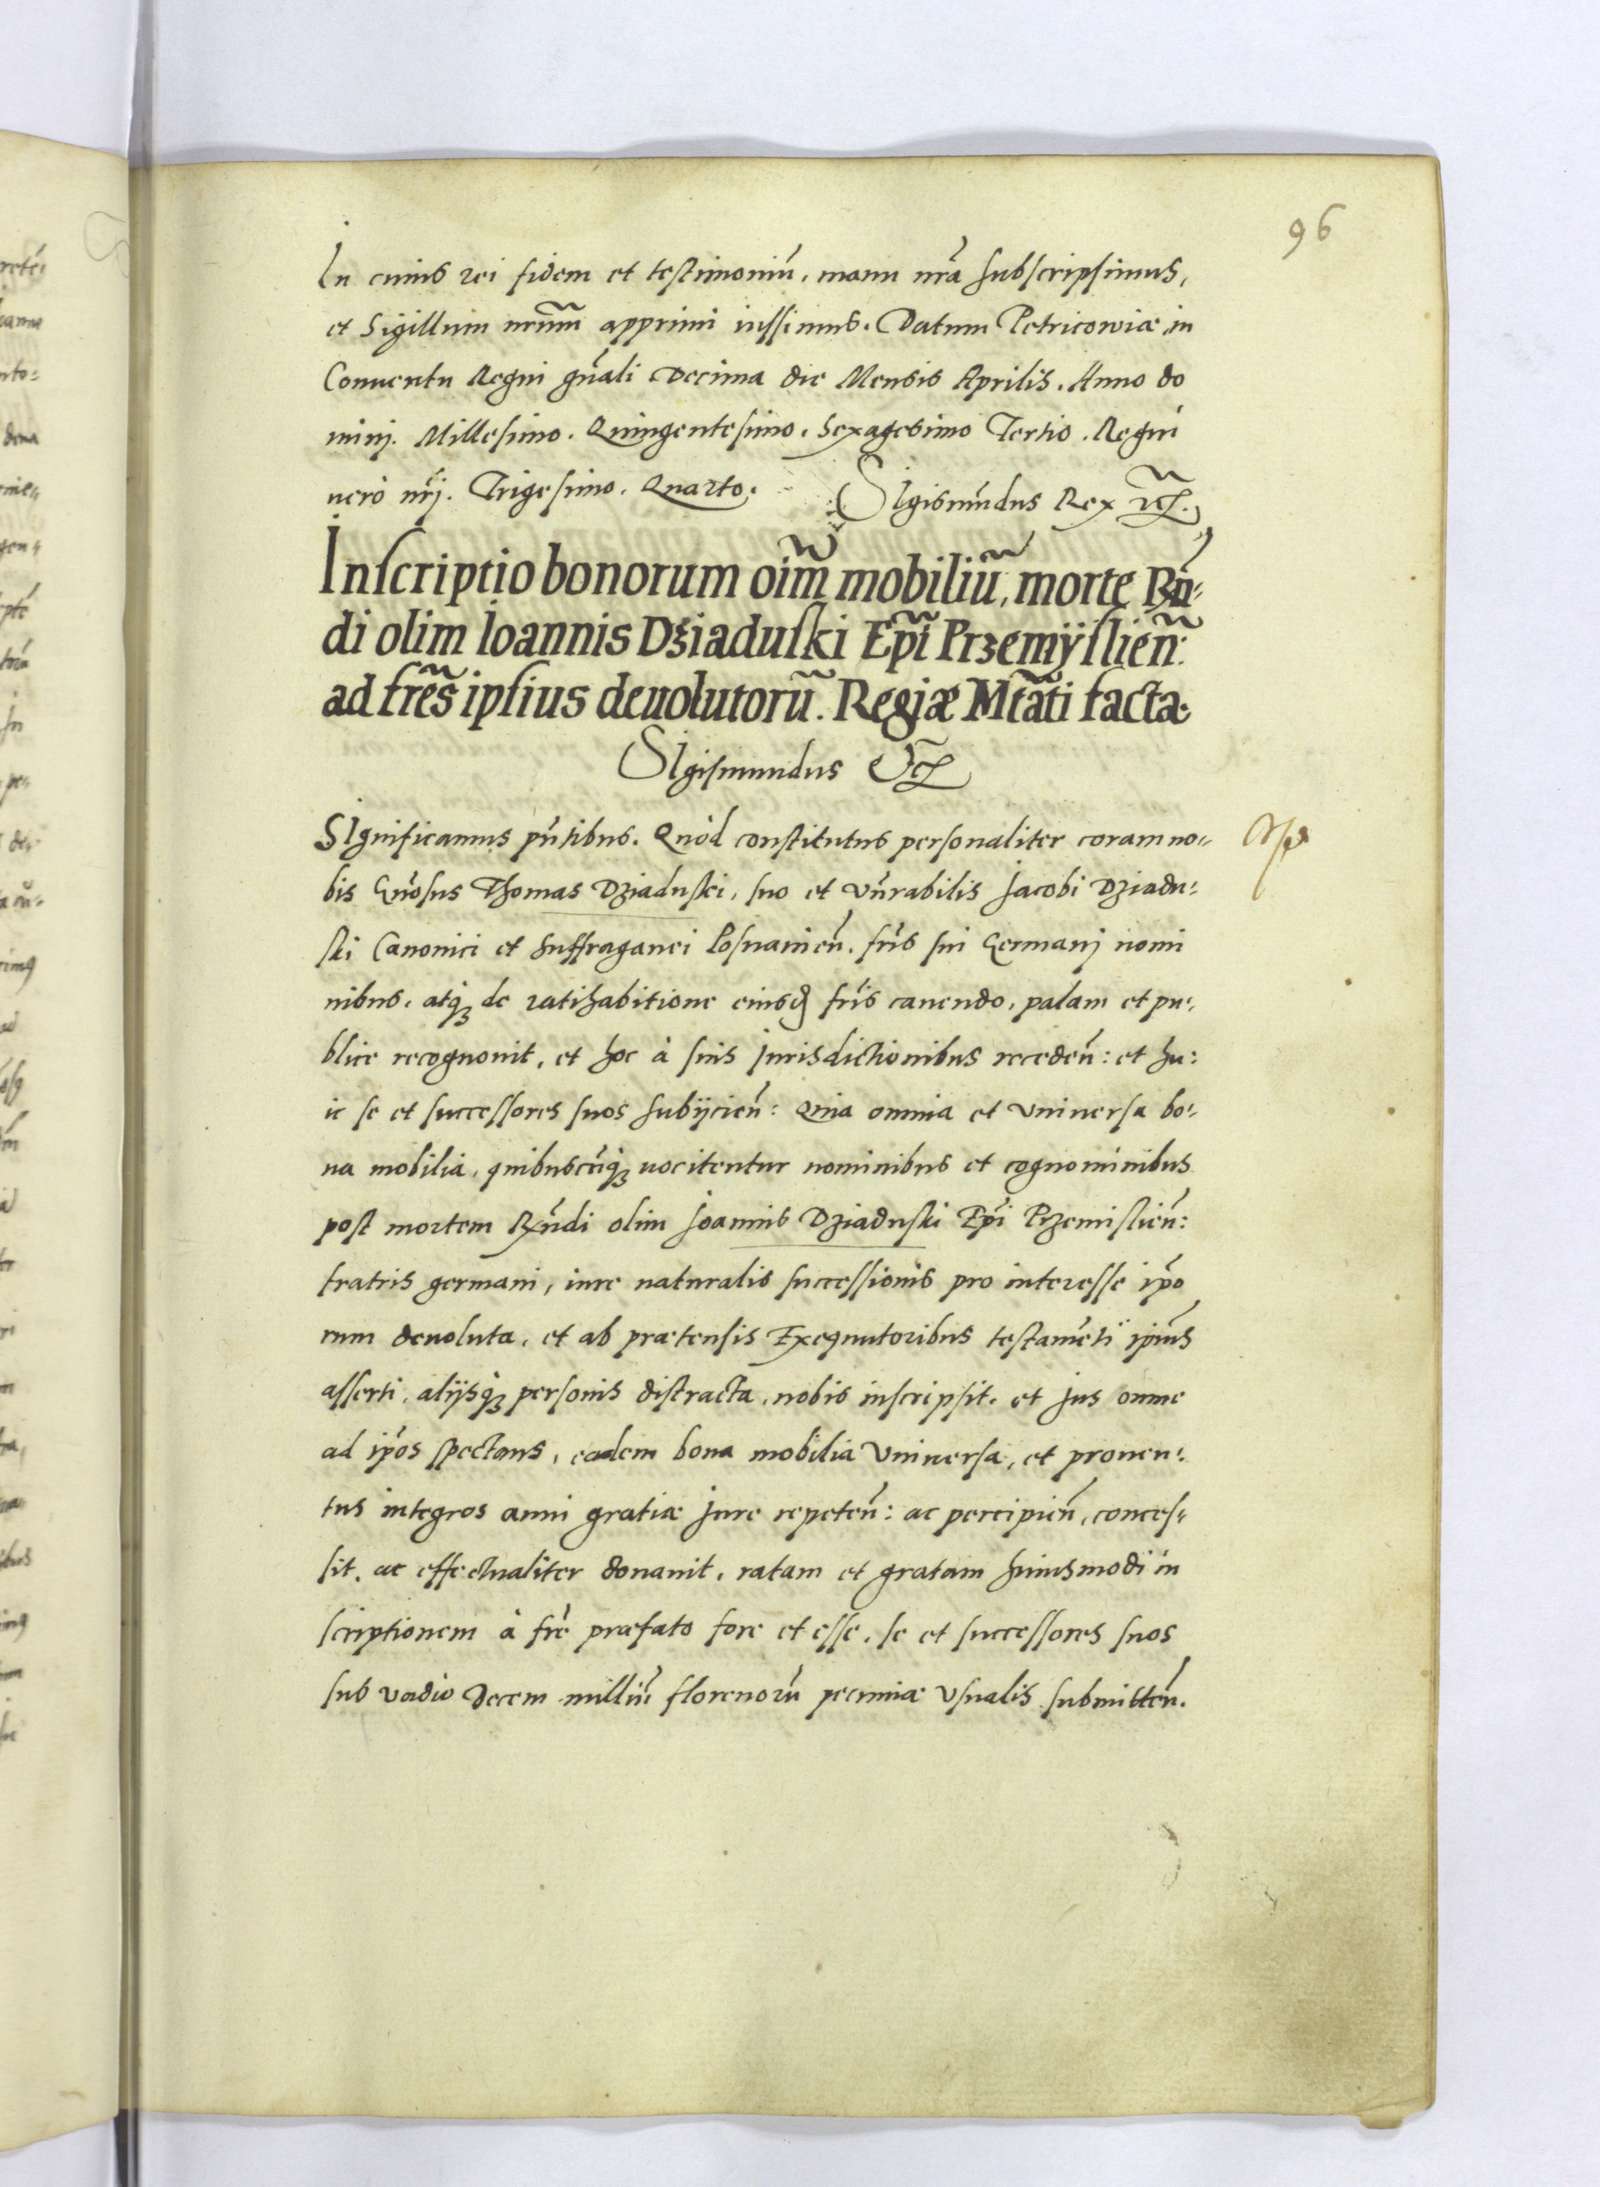 96
In cuius rei fidem et testimoniũ, manu nrã subscripsimus,
et Sigillum nrũm apprimi iussimus. Datum Petricowiæ in
Conuentu Regni gñali Decima die Mensis Aprilis. Anno do
minj. Millesimo. Quingentesimo. Sexagesimo Tertio. Regni
uero nrĩ. Trigesimo. Quarto.
SIgismũdus Rex
Inscriptio bonorum oĩm mobiliũ, morte Rñ-
di olim Ioannis Dziaduski Epĩ Przemÿslieñ:
ad frẽs ipsius deuolutorũ. Regiæ Mtãti facta.
SIgismundus &c
SIgnificamus pñtibus. Quòd constitutus personaliter coram no-
bis Gñosus Thomas Dziaduski, suo et vñrabilis Jacobi Dziadu-
ski Canonici et Suffraganei Posnanieñ. frĩs sui Germanj nomi
nibus, atq̃ de ratihabitione eiusd frĩs cauendo, palam et pu-
blice recognouit, et hoc à suis Jurisdictionibus recedeñ: et hu-
ic se et successores suos subijcieñ: Quia omnia et vniuersa bo-
na mobilia, quibuscũq̃ uocitentur nominibus et cognominibus
post mortem Rñdi olim Joannis Dziaduski Epĩ Przemislieñ:
fratris germani, iure naturalis successionis pro interesse ipõ
rum deuoluta, et ab prætensis Exequutoribus testamẽti ipĩus
asserti, alijsq̃ personis distracta, nobis inscripsit, et Jus omne
ad ipõs spectans, eadem bona mobilia Vniuersa, et prouen-
tus integros anni gratiæ Jure repeteñ: ac percipieñ, conces-
sit, ac effectualiter donauit, ratam et gratam huiusmodi in
scriptionem à frẽ præfato fore et esse, se et successores suos
sub vadio Decem milliũ florenorũ pecuniæ Vsualis submitteñ.